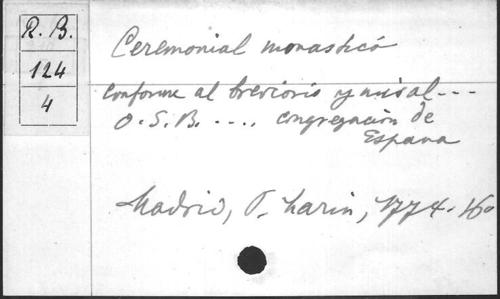 R. B.
124
4
Ceremonial monasticó
conforme al breviario y misal ---
O. S. B. ...., congregación de
España
Madrid, P. Marin, 1774. 16º